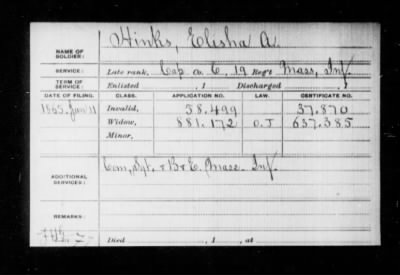 NAME OF SOLDIER: Hinks, Elisha A.
SERVICE: Late rank, Cap. Co. C, 19 Reg't Mass, Inf.
TERM OF SERVICE: Enlisted , 1 Discharged , 1
DATE OF FILING. CLASS. APPLICATION NO. LAW. CERTIFICATE NO.
1865, Jan 11 Invalid, 58.499 37.870
Widow, 881.172 O.J 637.385
Minor,
ADDITIONAL SERVICES: Com, Sgt. + B + E, Mass. Inf.
REMARKS:
Died , 1 , at